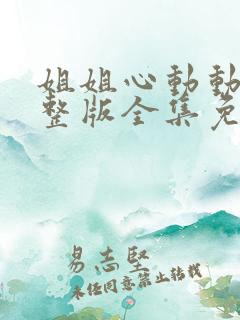 姐姐心動動
整版全集免
易志堅
未经同意禁止转载